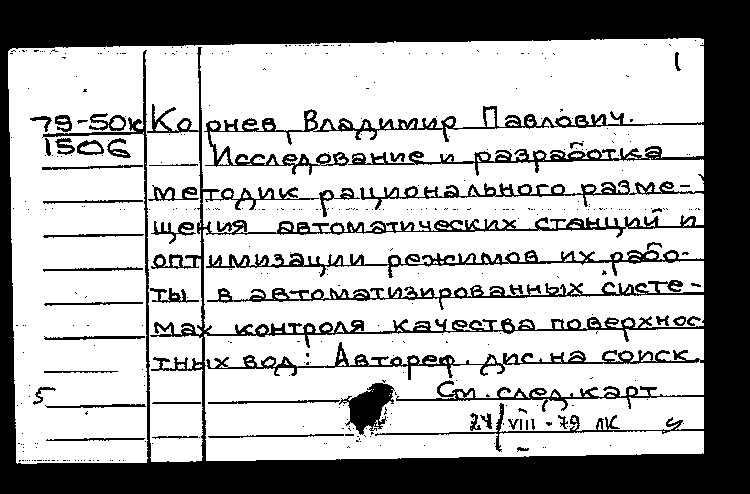 1
79-50к Корнев, Владимир Павлович.
1506 Исследование и разработка
методик рационального разме-
щения автоматических станций и
оптимизации режимов их рабо-
ты в автоматизированных систе-
мах контроля качества поверхнос
тных вод: Автореф. дис. на соиск.
5 См. след. карт.
24/viii-79 ЛК